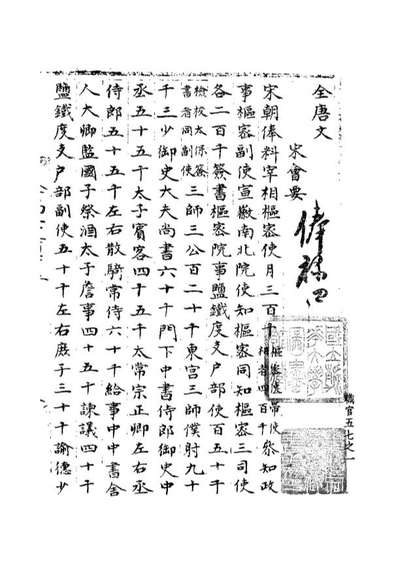 職官五七之一
全唐文
宋會要
俸祿四
宋朝俸料宰相樞密使月三百千樞密使帶使相者四百千參知政
事樞密副使宣徽南北院使知樞密同知樞密三司使
各二百千簽書樞密院事鹽鐵度支戶部使百五十千
檢校太保簽書者同副使三師三公百二十千東宮三師僕射九十
千三少御史大夫尚書六十千門下中書侍郎御史中
丞五十五千太子賓客四十五千太常宗正卿左右丞
侍郎五十五千左右散騎常侍六十千給事中中書舍
人大卿監國子祭酒太子詹事四十五千諫議四十千
鹽鐵度支戶部副使五十千左右庶子三十千諭德少